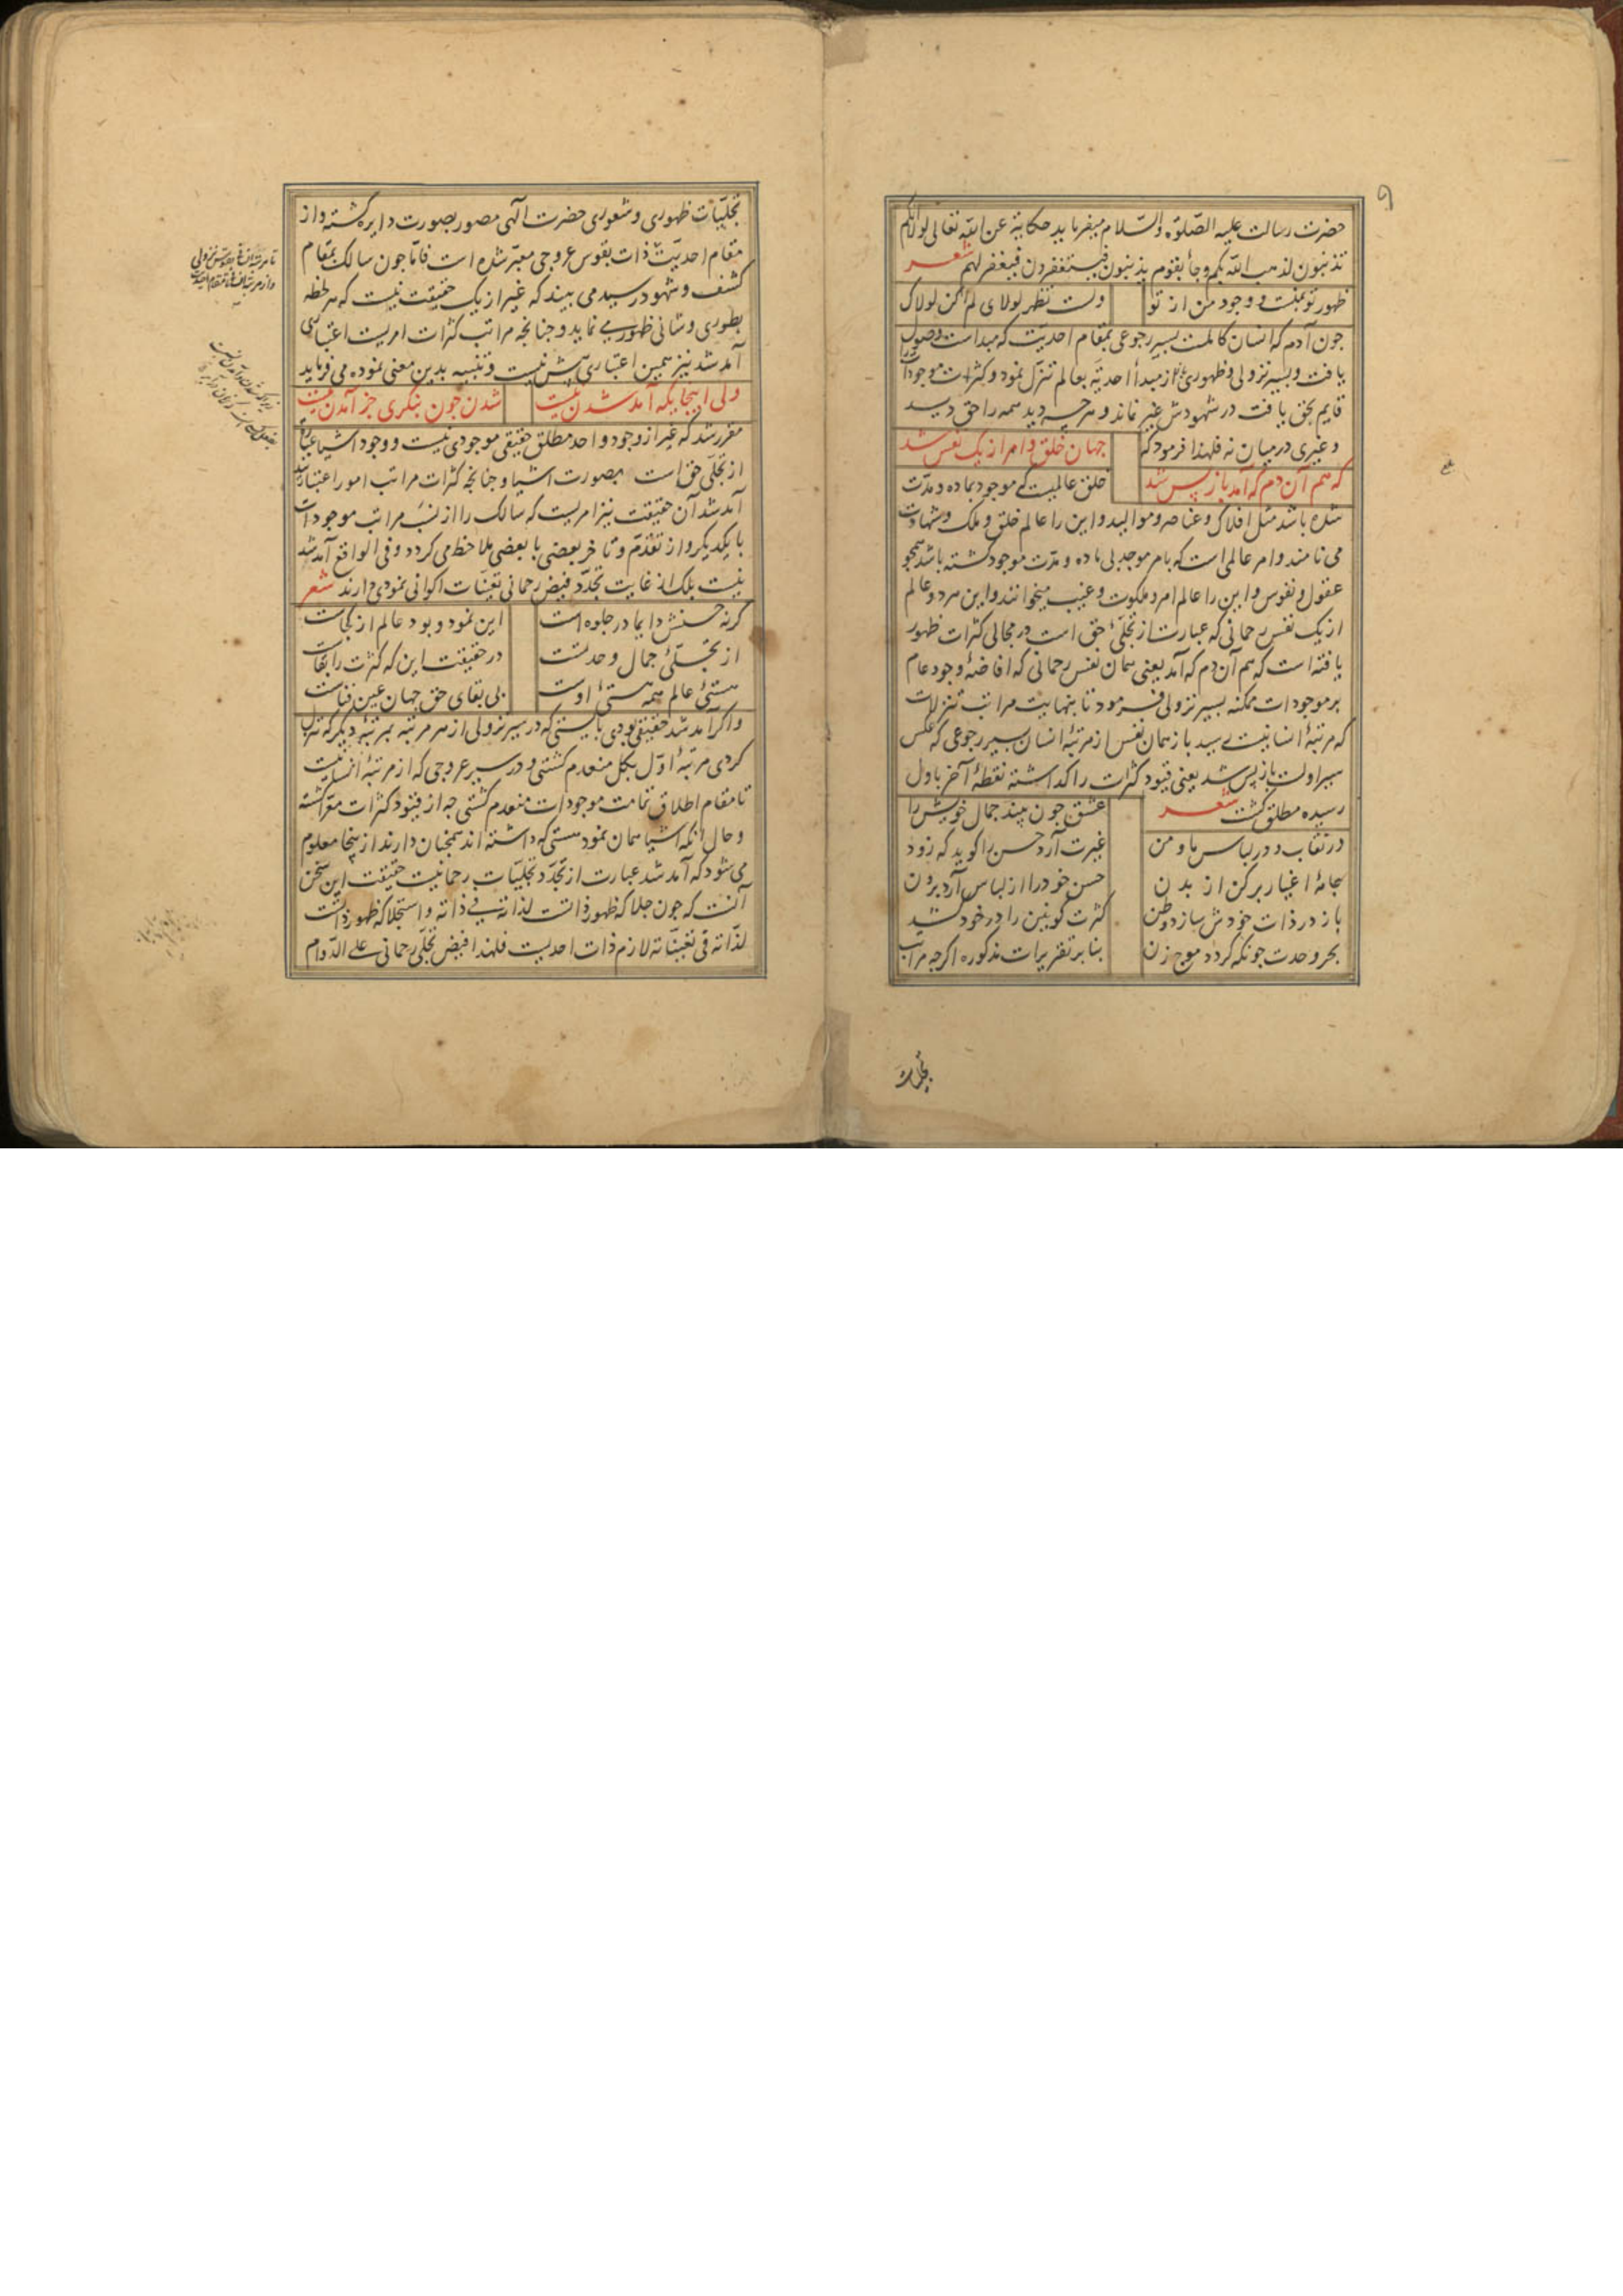 حضرت رسالت علیه الصّلوة والسّلام میفرماید حکایة عن الله تعالی لولا انکم
تذنبون لذهب الله بکم وجأ بقوم یذنبون فیستغفرون فیغفر لهم شعر
ظهور تو بمنست و وجود من از تو ولست تظهر لولای لم اکن لولاک
جون آدم که انسان کاملست بسیر رجوعی بمقام احدیّت که مبداست وصول
یافت و بسیر نزولی و ظهوری از مبدأ احدیّه بعالم تنزّل نمود و کثرات موجودات را
قایم بحق یافت در شهودش غیر نماند و هرچه دید همه را حق دید
و غیری در میان نه فلهذا فرمود که جهان خلق و امر از یک نفس شد
که هم آن دم که آمد باز پس شد خلق عالمیست که موجود بماده و مدّت
شده باشد مثل افلاک و عناصر و موالید و این را عالم خلق و ملک و شهادت
می نامند و امر عالمی است که بامر موجد بی ماده و مدت موجود کشته باشد همجو
عقول و نفوس و این را عالم امر و ملکوت و غیب میخوانند و این هر دو عالم
از یک نفس رحمانی که عبارت از تجلّئ حق است در مجالی کثرات ظهور
یافته است که هم آن دم که آمد یعنی همان نفس رحمانی که افاضهٔ وجود عام
بر موجودات ممکنه بسیر نزولی فرمود تا بنهایت مراتب تنزلات
که مرتبهٔ انسانیت رسید باز همان نفس از مرتبهٔ انسان بسیر رجوعی که عکس
سیر اولست باز پس شد یعنی قیود کثرات را کداشته نقطهٔ آخر باول
رسیده مطلق کشت شعر عشق جون بیند جمال خویش را
در نقاب و در لباس ما و من غیرت آرد حسن را کوید که زود
جامهٔ اغیار برکن از بدن حسن خود را از لباس آرد برون
باز در ذات خودش سازد وطن کثرت کونین را در خود کشد
بحر وحدت جونکه کردد موج زن بنا بر تقریرات مذکوره اکرجه مراتب
تجلیّات ظهوری و شعوری حضرت الهی مصور بصورت دایره کشته و از
مقام احدیّت ذات بقوس عروجی معبّر شده است فامّا جون سالک بمقام
کشف و شهود رسید می بیند که غیر از یک حقیقت نیست که هر لحظه
بطوری و شانی ظهور می نماید و جنانجه مراتب کثرات امریست اعتباری
آمد شد نیز همین اعتباری بیش نیست و تنبیه بدین معنی نموده می فرماید
ولی اینجایکه آمد شدن نیست شدن جون بنکری جز آمدن نیست
مقرر شد که غیر از وجود واحد مطلق حقیقی موجودی نیست و وجود اشیا عبارة
از تجلّی حق است بصورت اشیا و جنانجه کثرات مراتب امور اعتباریند
آمد شد آن حقیقت نیز امریست که سالک را از نسَب مراتب موجودات
با یکدیکر و از تقدّم و تاخر بعضی با بعضی ملاحظه می کردد و فی الواقع آمد شد
نیست بلک از غایت تجدّد فیض رحمانی تعیّنات اکوانی نمودی دارند شعر
کرنه حسنش دایما در جلوه است این نمود و بود عالم از کجاست
از تجلّئ جمال وحدتست در حقیقت این که کثرت را بقاست
هستئ عالم همه هستئ اوست بی بقای حق جهان عین فناست
و اکر آمد شد حقیقی بودی بایستی که در سیر نزولی از هر مرتبه بمرتبهٔ دیکر که تنزل
کردی مرتبهٔ اوّل بکل منعدم کشتی و در سیر عروجی که از مرتبهٔ انسانیت
تا مقام اطلاق تمامت موجودات منعدم کشتی جه از قیود کثرات معّرا کشته
و حال آنکه اشیا همان نمود هستی که داشته اند همجنان دارند از ینجا معلوم
می شود که آمد شد عبارت از تجدّد تجلیّات رحمانیت حقیقت این سخن
آنست که جون جلا که ظهور ذاتست لذاته فی ذاته و استجلا که ظهور ذاتست
لذّاته فی تعیّناته لازم ذات احدیست فلهذا فیض تجلّی رحمانی علی الدّوام